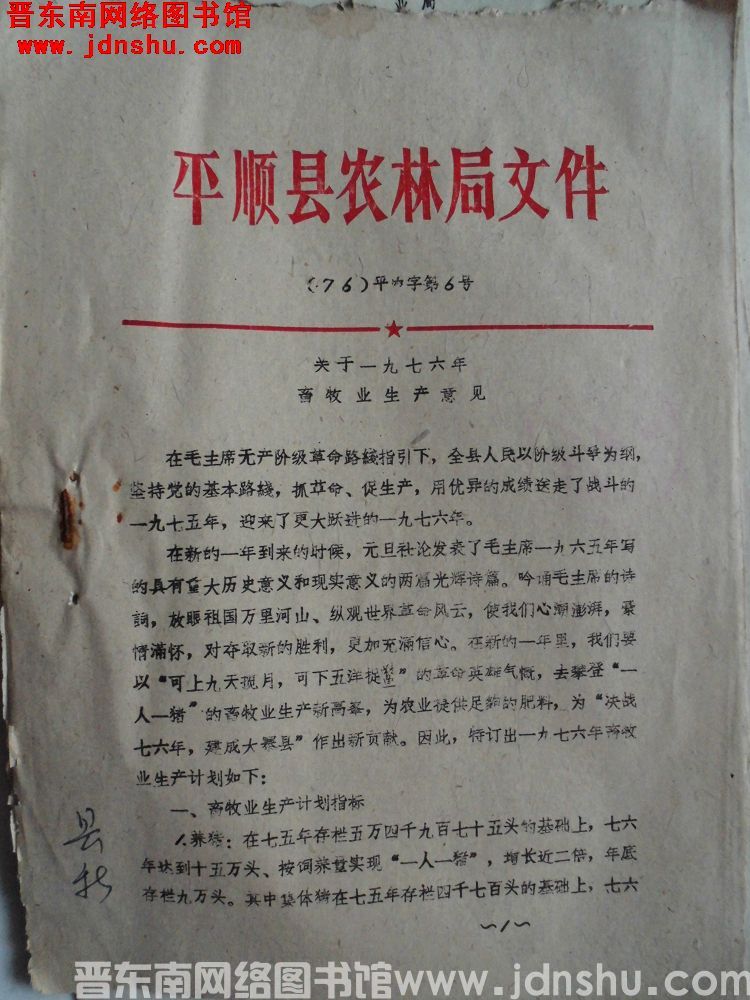 晋东南网络图书馆
www.jdnshu.com
业局
平顺县农林局文件
(76)平农字第6号
关于一九七六年
畜牧业生产意见
在毛主席无产阶级革命路綫指引下,全县人民以阶级斗争为纲,
坚持党的基本路綫,抓革命、促生产,用优异的成绩送走了战斗的
一九七五年,迎来了更大跃进的一九七六年。
在新的一年到来的时候,元旦社论发表了毛主席一九六五年写
的具有重大历史意义和现实意义的两篇光辉诗篇。吟诵毛主席的诗
词,放眼祖国万里河山、纵观世界革命风云,使我们心潮澎湃,豪
情满怀,对夺取新的胜利,更加充满信心。在新的一年里,我们要
以“可上九天揽月,可下五洋捉鳖”的革命英雄气慨,去攀登“一
人一猪”的畜牧业生产新高峯,为农业提供足夠的肥料,为“决战
七六年,建成大寨县”作出新贡献。因此,特订出一九七六年畜牧
业生产计划如下:
一、畜牧业生产计划指标
1.养猪:在七五年存栏五万四千九百七十五头的基础上,七六
年达到十五万头、按饲养量实现“一人一猪”,增长近二倍,年底
存栏九万头。其中集体猪在七五年存栏四千七百头的基础上,七六
~1~
晋东南网络图书馆www.jdnshu.com